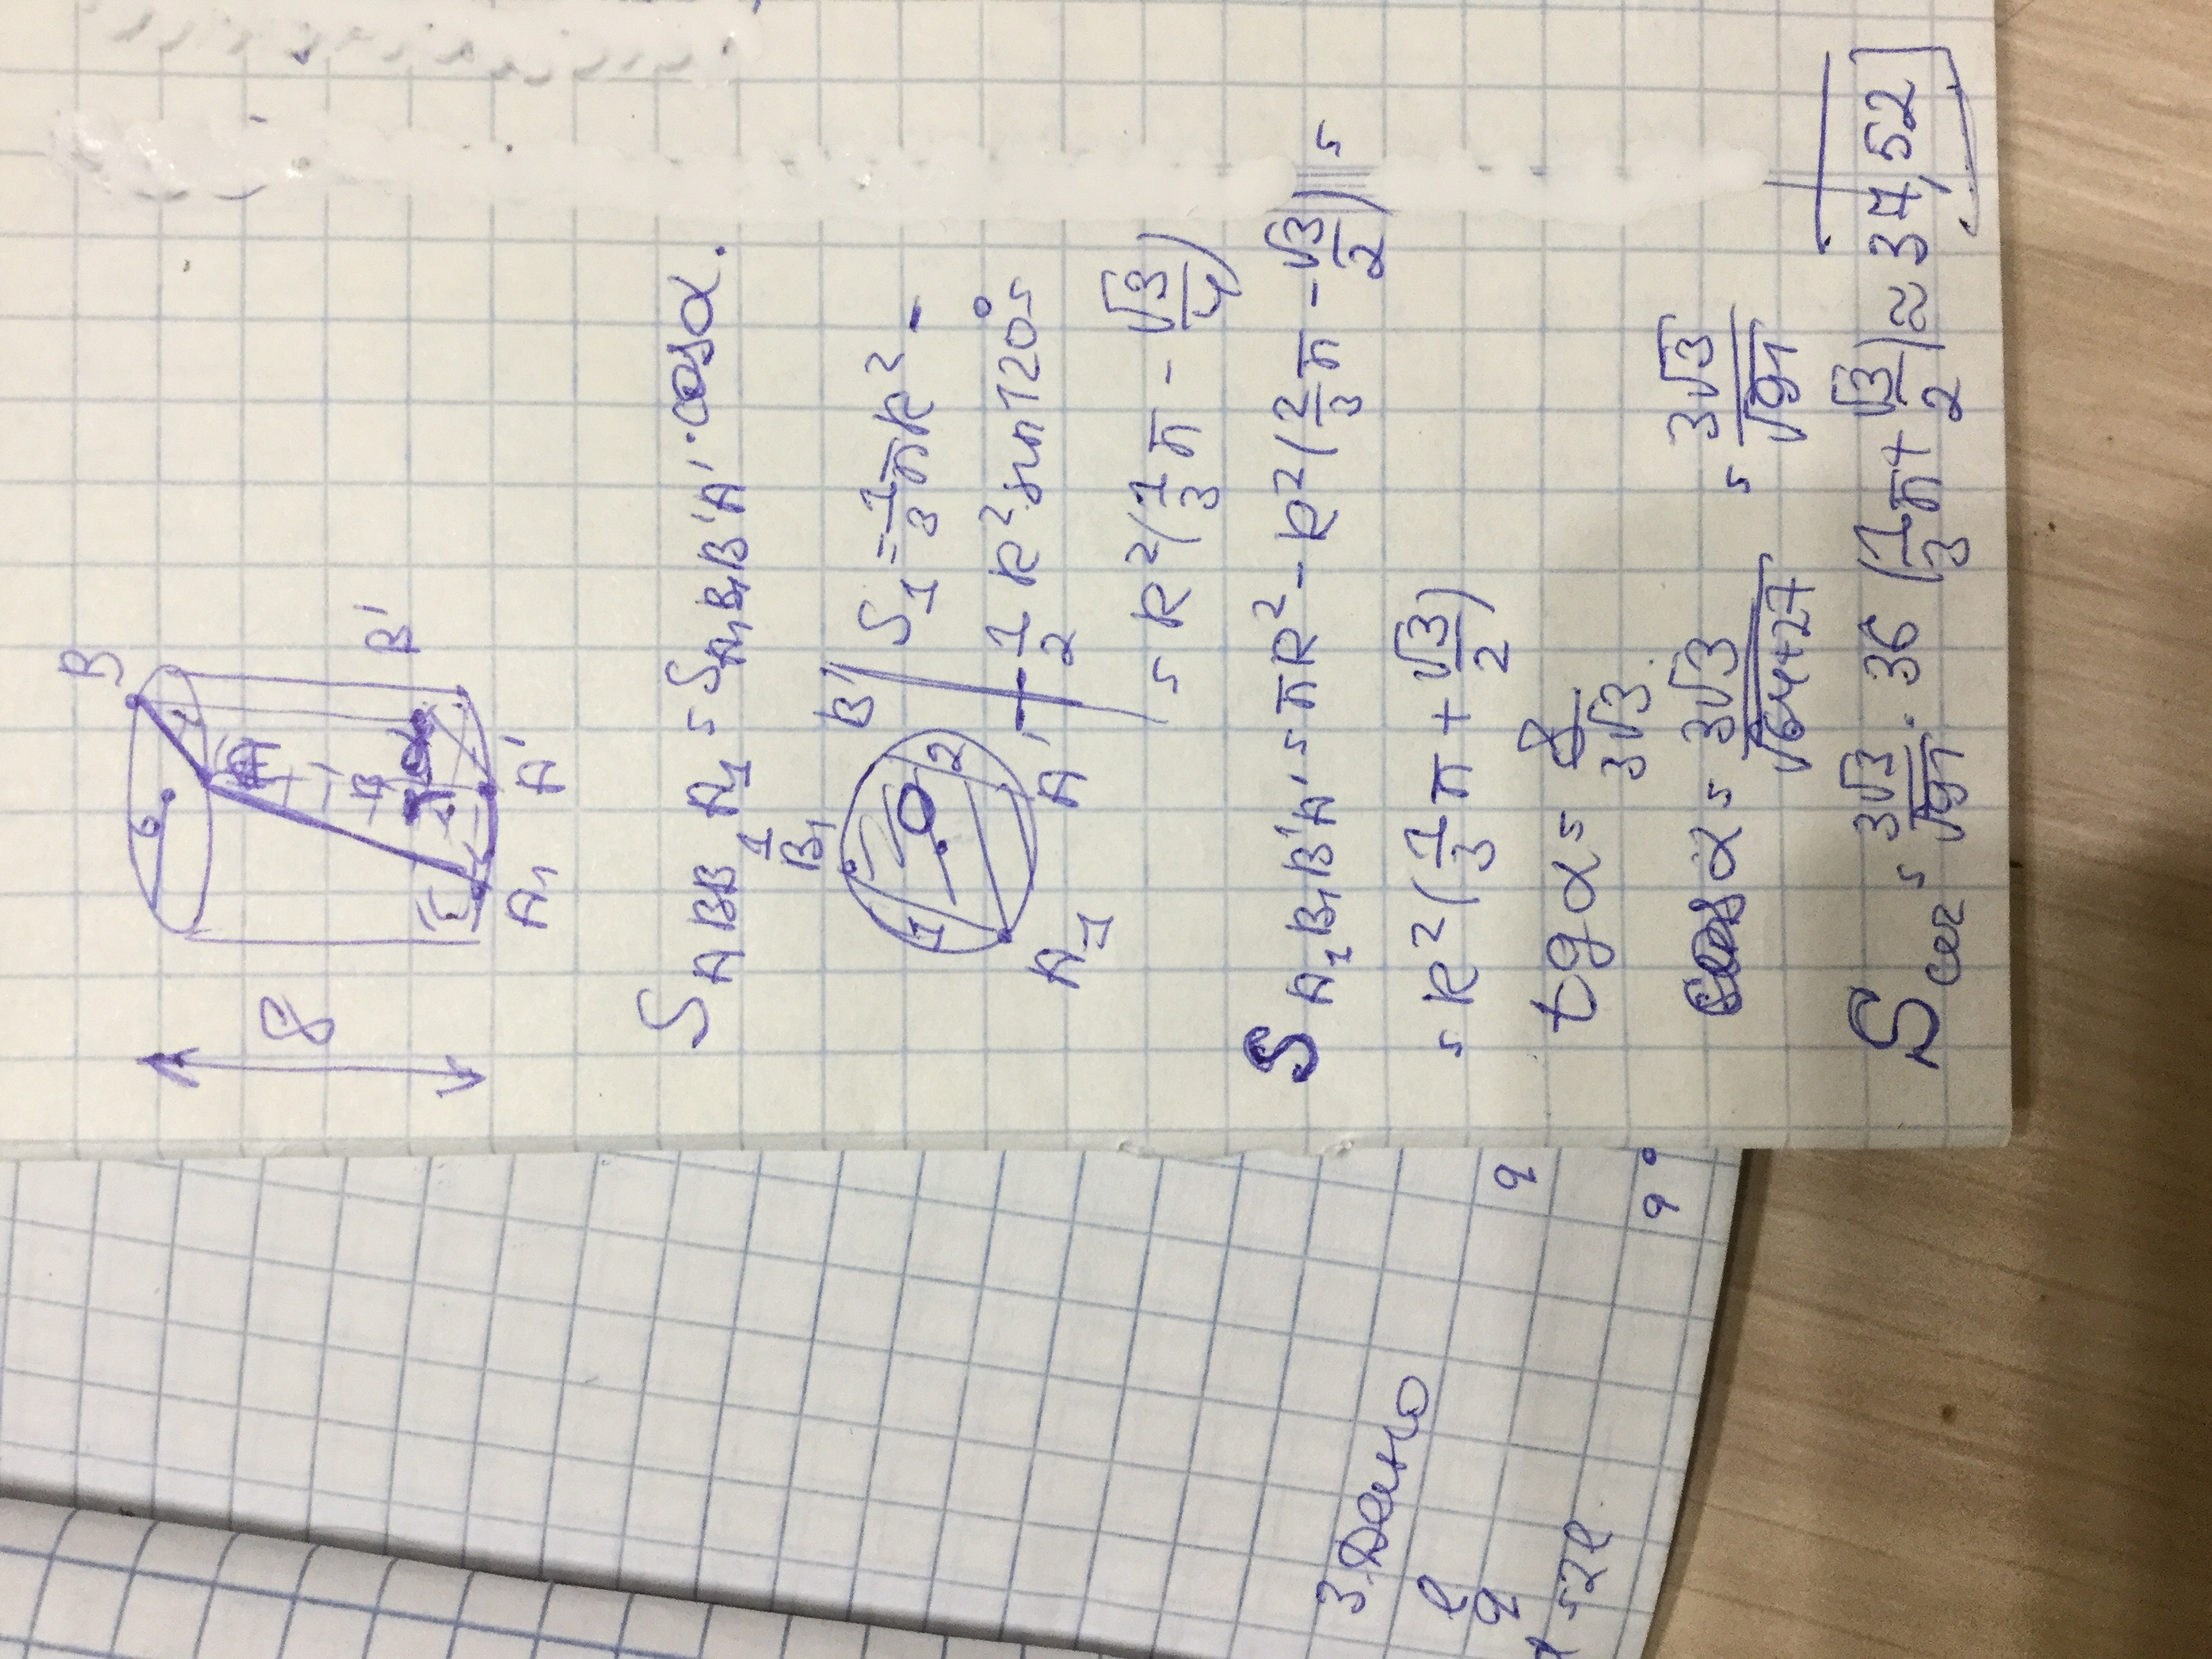 B
6
A
8
B'
α
A₁
A'
S ABB₁A₁ = S A₁B₁B'A' · cosα.
B₁
B'
S₁ = 1/3 πR² -
1
O
2
- 1/2 R² sin120° =
A₁
A'
= R²(1/3 π - √3/4)
S A₁B₁B'A' = πR² - R²(2/3 π - √3/2) =
= R²(1/3 π + √3/2)
tgα = 8/3√3
cosα = 3√3/√64+27 = 3√3/√91
Sсеч = 3√3/√91 · 36 (1/3 π + √3/2) ≈ 37,52
3. Дано